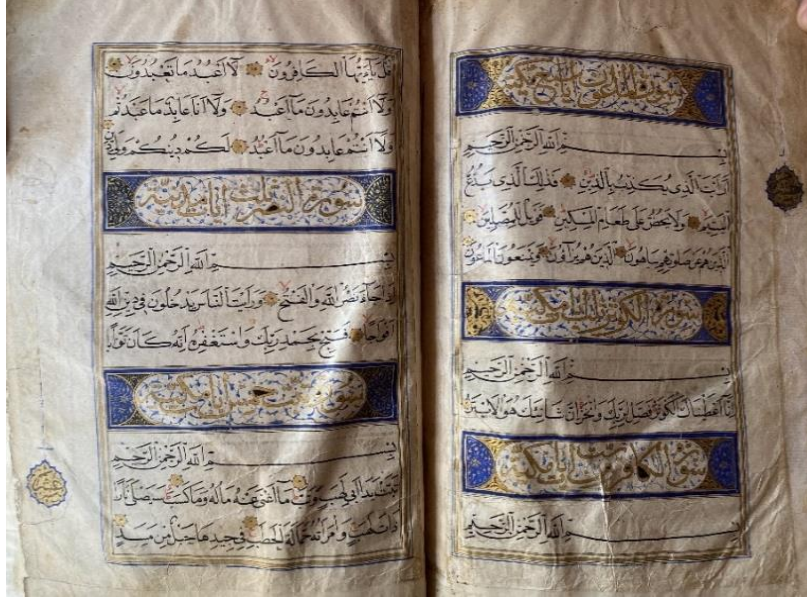 سورة الماعون سبع آيات مكية
بسم الله الرحمن الرحيم
ارايت الذي يكذب بالدين فذلك الذي يدع
اليتيم ولا يحض على طعام المسكين فويل للمصلين
الذين هم عن صلوتهم ساهون الذين هم يراؤن ويمنعون الماعون
سورة الكوثر ثلث ايات مكية
بسم الله الرحمن الرحيم
انا اعطيناك الكوثر فصل لربك وانحر ان شانئك هو الابتر
سورة الكافرون ست ايات مكية
بسم الله الرحمن الرحيم
قل يا ايها الكافرون لا اعبد ما تعبدون
ولا انتم عابدون ما اعبد ولا انا عابد ما عبدتم
ولا انتم عابدون ما اعبد لكم دينكم ولي دين
سورة النصر ثلث ايات مدنية
بسم الله الرحمن الرحيم
اذا جاء نصر الله والفتح ورايت الناس يدخلون في دين الله
افواجا فسبح بحمد ربك واستغفره انه كان توابا
سورة تبت خمس ايات مكية
بسم الله الرحمن الرحيم
تبت يدا ابي لهب وتب ما اغنى عنه ماله وما كسب سيصلى نارا
ذات لهب وامراته حمالة الحطب في جيدها حبل من مسد